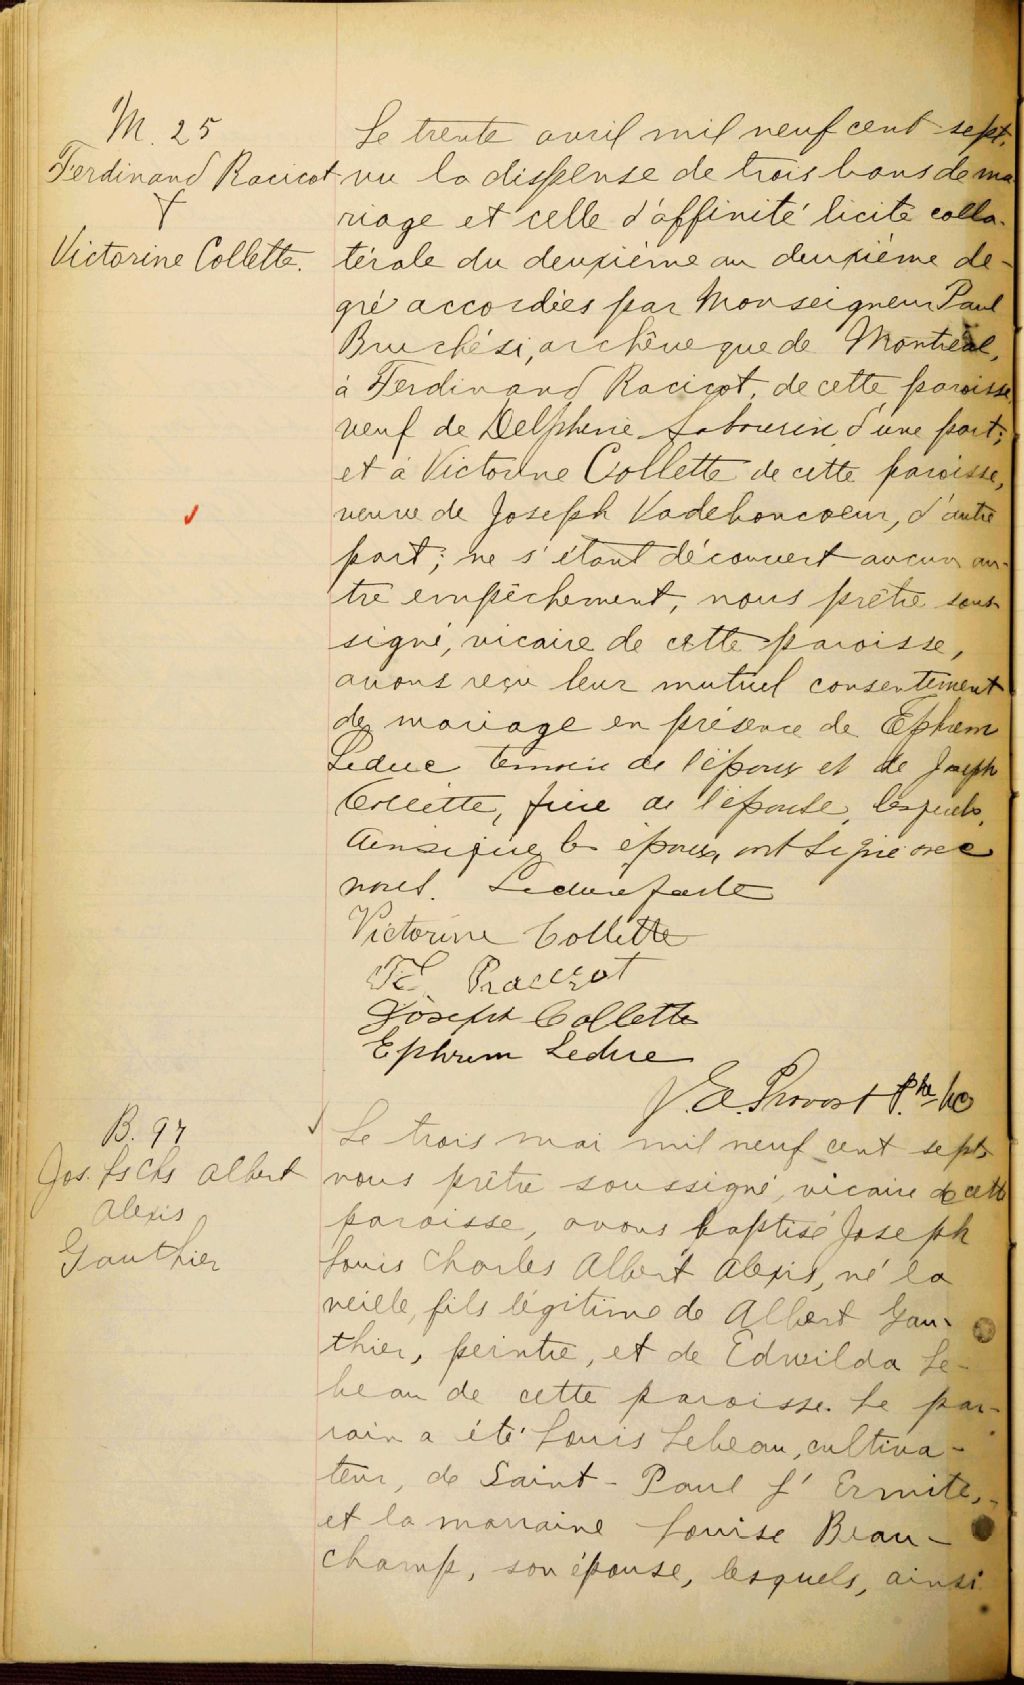 M. 25
Ferdinand Racicot
&
Victorine Collette.
Le trente avril mil neuf cent sept,
vu la dispense de trois bans de ma-
riage et celle d'affinité licite colla-
térale du deuxième au deuxième de-
gré accordées par Monseigneur Paul
Bruchési, archevêque de Montréal,
à Ferdinand Racicot, de cette paroisse,
veuf de Delphine Sabourin, d'une part;
et à Victorine Collette de cette paroisse,
veuve de Joseph Vadeboncoeur, d'autre
part; ne s'étant découvert aucun au-
tre empêchement, nous prêtre sous-
signé, vicaire de cette paroisse,
avons reçu leur mutuel consentement
de mariage en présence de Ephrem
Leduc témoin de l'époux et de Joseph
Collette, frère de l'épouse, lesquels,
ainsi que les époux, ont signé avec
nous. Lecture faite
Victorine Collette
Fd Racicot
Joseph Collette
Ephrem Leduc
J. E. Provost Ptre
B. 97
Jos. Ls Chs Albert
Alexis
Gauthier
Le trois mai mil neuf cent sept
nous prêtre soussigné, vicaire de cette
paroisse, avons baptisé Joseph
Louis Charles Albert Alexis, né la
veille, fils légitime de Albert Gau-
thier, peintre, et de Edwilda Le-
beau de cette paroisse. Le par-
rain a été Louis Lebeau, cultiva-
teur, de Saint-Paul l'Ermite,
et la marraine Louise Beau-
champ, son épouse, lesquels, ainsi